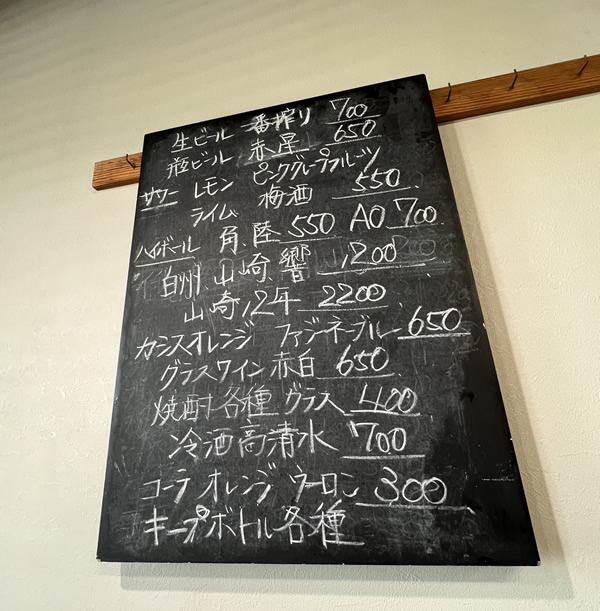 生ビール 一番搾り 700
瓶ビール 赤星 650
サワー レモン ピンクグループフルーツ
ライム 梅酒 550
ハイボール 角、陸 550 AO 700
白州 山崎 響 1,200
山崎12年 2200
カシスオレンジ ファジーネーブル 650
グラスワイン赤白 650
焼酎各種 グラス 400
冷酒高清水 700
コーラ オレンジ ウーロン 300
キープボトル各種